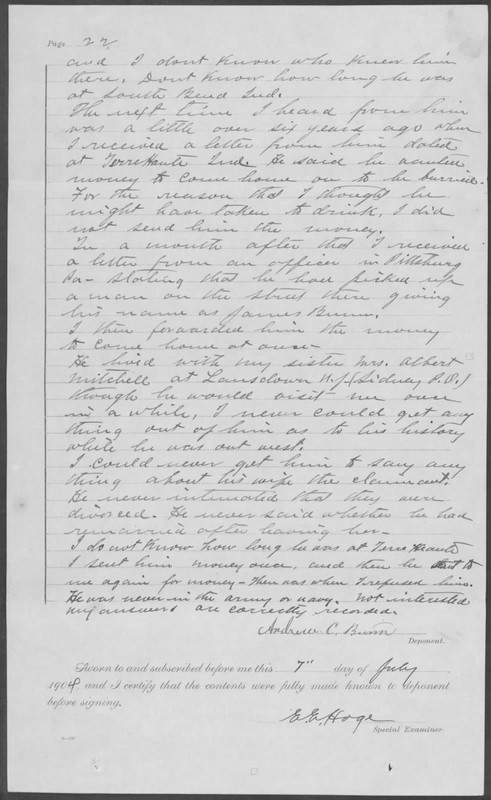 Page 22
and I dont know who knew him
there. Dont know how long he was
at South Bend Ind.
The next time I heard from him
was a little over six years ago when
I received a letter from him dated
at Terre Haute Ind. He said he wanted
money to come home on to be burried.
For the reason that I thought he
might have taken to drink, I did
not send him the money.
In a month after that I received
a letter from an officer in Pittsburg
Pa- stating that he had picked up
a man on the street there giving
his name as James Bunn.
I then forwarded him the money
to come home at once-
He lived with my sister Mrs. Albert
Mitchell at Lansdown N.J. (Sidney P.O.)
though he would visit me once
in a while, I never could get any
thing out of him as to his history
while he was out west.
I could never get him to say any
thing about his wife the claimant.
He never intimated that they were
divorced. He never said whether he had
remarried after leaving her-
I do not know how long he was at Terre Haute
I sent him money once, and then he to
me again for money- then was when I refused him.
He was never in the army or navy. Not interested
My answers are correctly recorded.
Andrew C. Bunn
Deponent.
Sworn to and subscribed before me this 7" day of July
1904, and I certify that the contents were fully made known to deponent
before signing.
E.E. Hoge
Special Examiner.